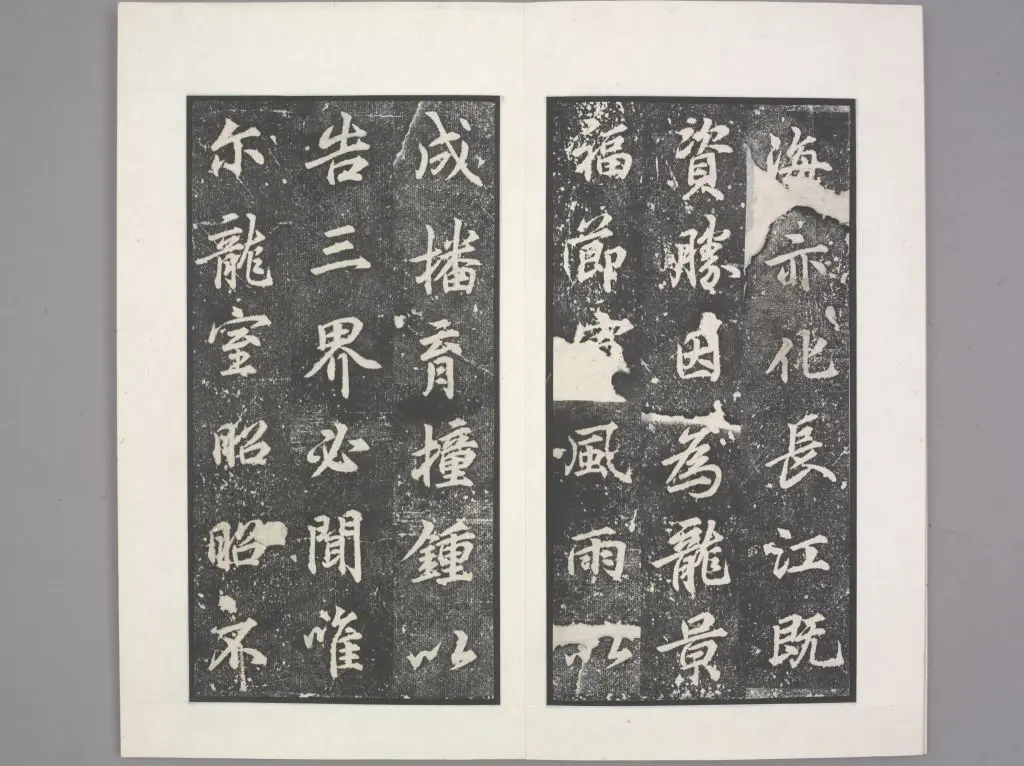 海亦化長江既
資勝因為龍景
福節風雨以
成播育撞鍾以
告三界必聞唯
尓龍室昭昭不